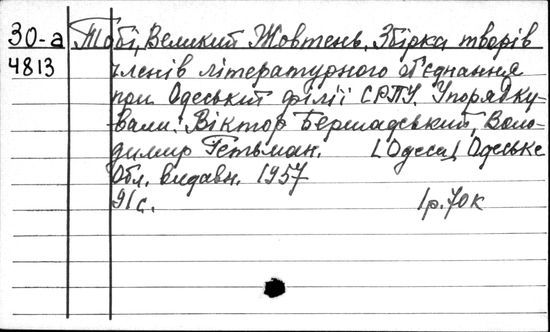 30-а Тобі, Великий Жовтень. Збірка творів
4813 членів літературного об'єднання
при Одеській філії СРПУ. Упорядку-
вали: Віктор Бершадський, Воло-
димир Гетьман. [Одеса] Одеське
Обл. видавн. 1957
91 с. 1р. 70к